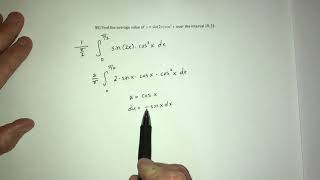 Find the average value of y = sin(2x) cos² x over the interval [0, π/2].
1/(π/2) ∫₀^(π/2) sin(2x) · cos² x dx
2/π ∫₀^(π/2) 2 · sin x · cos x · cos² x dx
u = cos x
du = - sin x dx